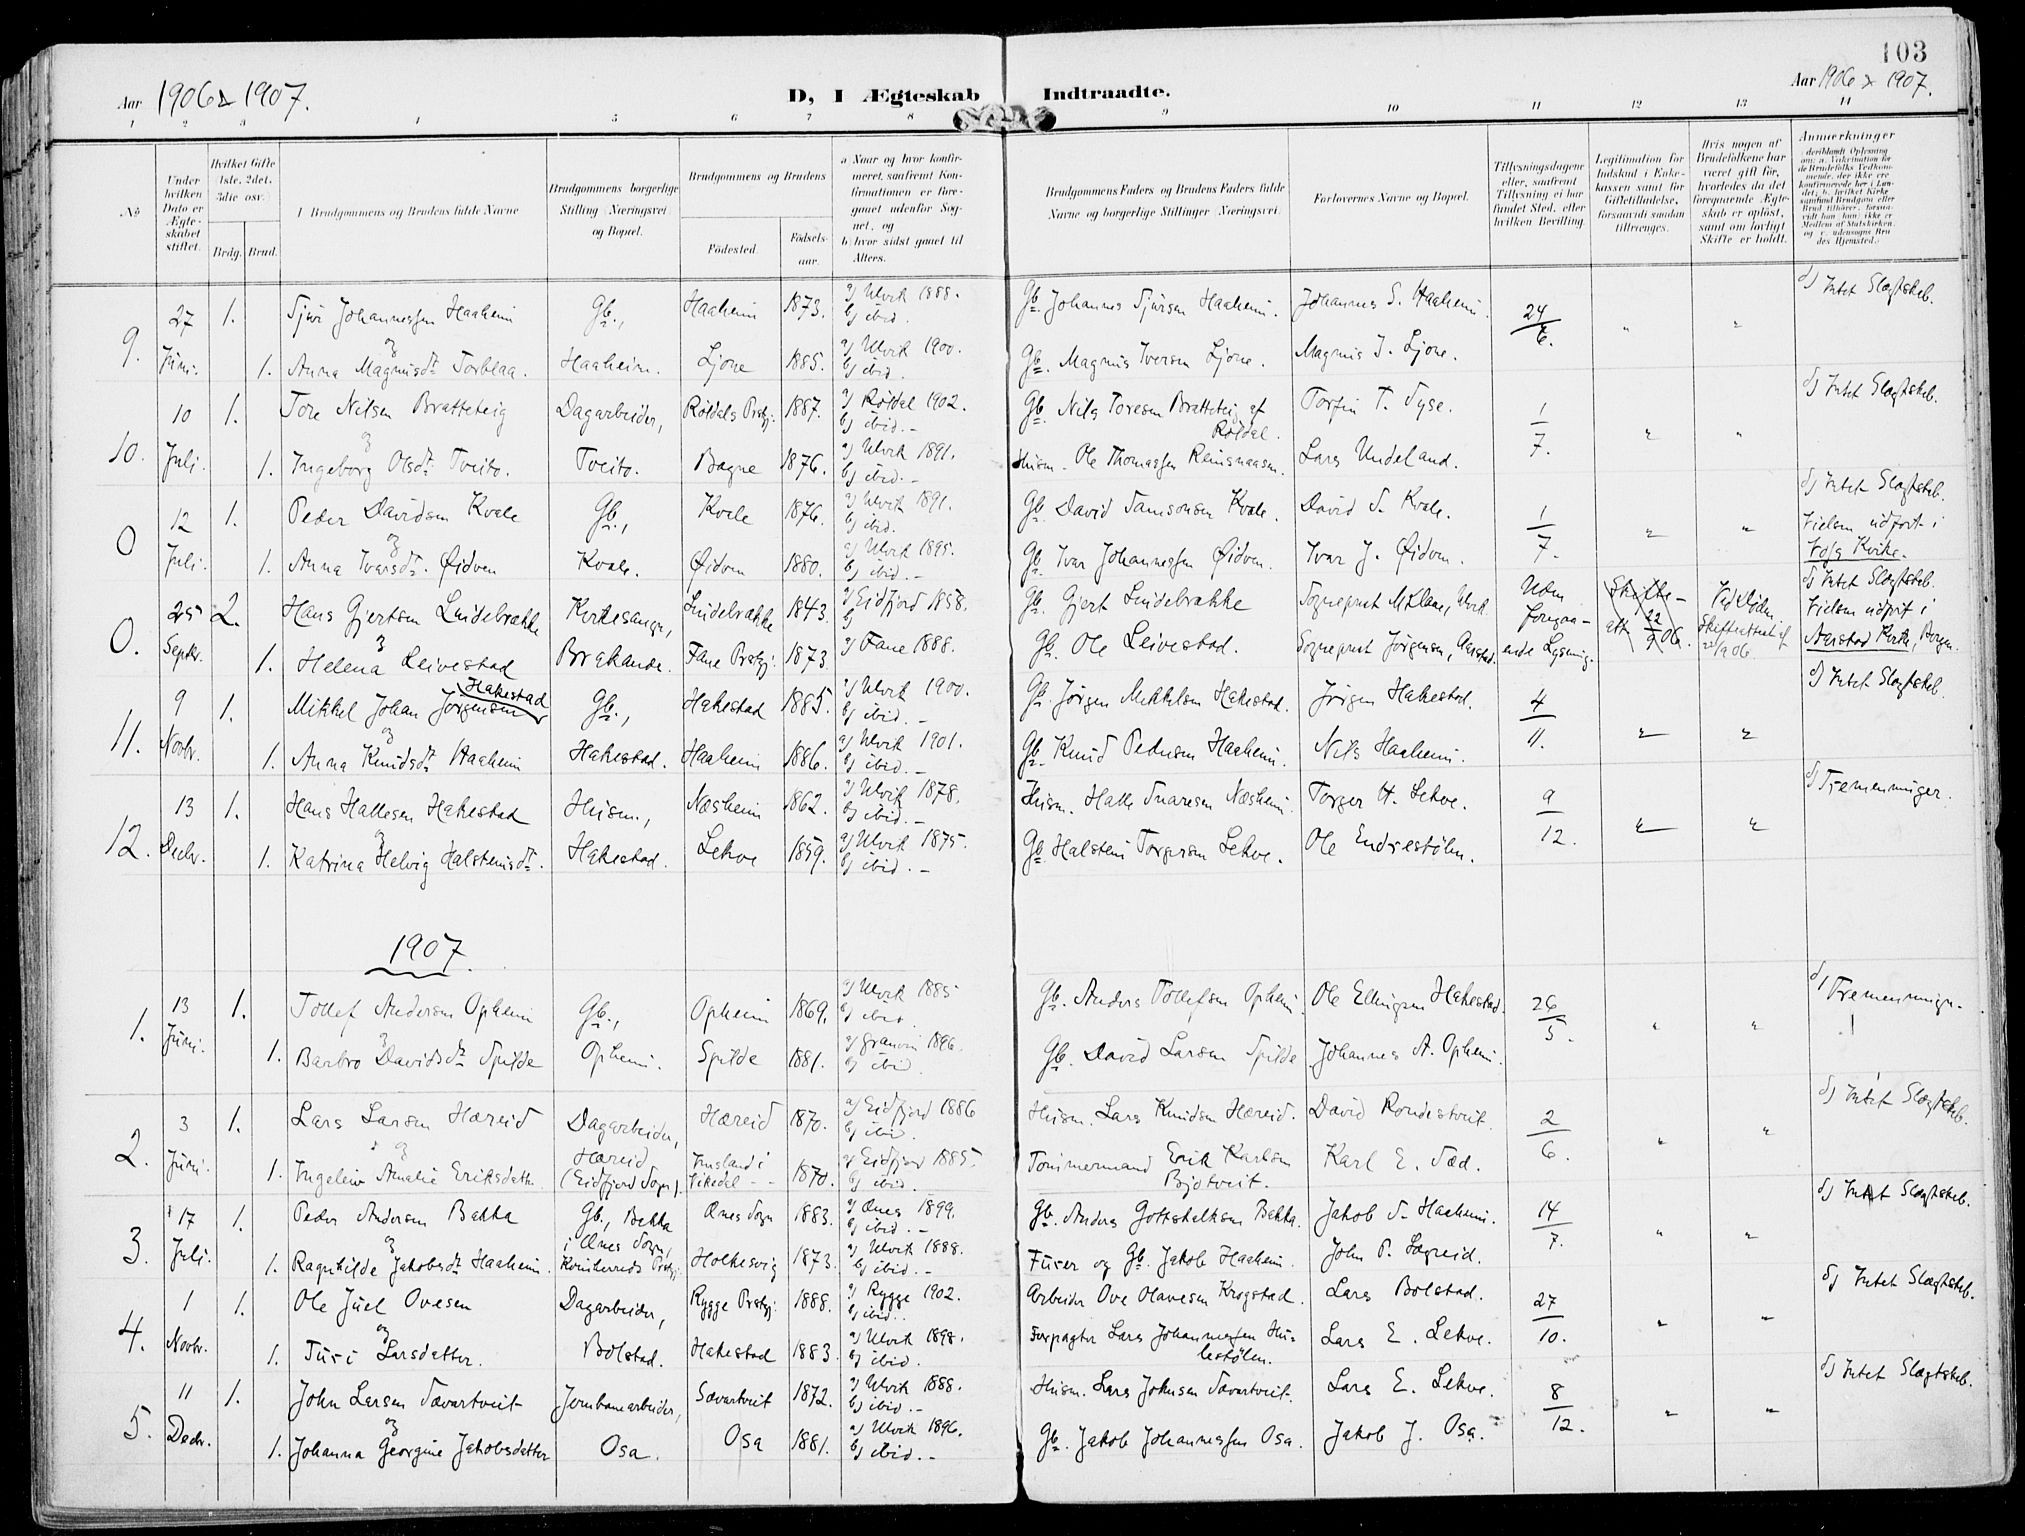 103
Aar 1906 & 1907.
D, I Ægteskab Indtraadte.
Aar 1906 & 1907.
1 2 3 4 5 6 7 8 9 10 11 12 13 14
No
Under hvilken Dato er Ægteskabet stiftet.
Hvilket Gifte 1ste, 2det, 3die osv.
Brdg. Brud.
I Brudgommens og Brudens fulde Navne
Brudgommens borgerlige Stilling (Næringsvei) og Bopæl.
Brudgommens og Brudens
Fødested.
Fødsels-aar.
a Naar og hvor konfirmeret, saafremt Konfirmationen er foregaaet udenfor Sognet, og
b) hvor sidst gaaet til Alters.
Brudgommens Faders og Brudens Faders fulde Navne og borgerlige Stillinger (Næringsvei)
Forlovernes Navne og Bopæl.
Tillysningsdagene eller, saafremt Tillysning ei har fundet Sted, efter hvilken Bevilling.
Legitimation for Indskud i Enkekassen samt for Giftetilladelse, forsaavidt saadan tiltrænges.
Hvis nogen af Brudefolkene har været gift før, hvorledes da det foregaaende Ægteskab er opløst, samt om lovligt Skifte er holdt.
Anmerkninger
9. 27 Juni. 1. Sjur Johannessen Haaheim Gb., Haaheim 1873. a) Ulvik 1888. b) ibid. Gb. Johannes Sjursen Haaheim. Johannes S. Haaheim. 24/6. " " d) Intet Slegtskb.
og
1. Anna Magnusdt Torblaa. Haaheim. Ljone 1885. a) Ulvik 1900. b) ibid. Gb. Magnus Iversen Ljone. Magnus I. Ljone.
10. 10 Juli. 1. Tore Nilsen Bratteteig Dagarbeider, Røldals Prstgj. 1887. a) Røldal 1902. b) ibid.- Gb. Nils Toresen Bratteteig af Røldal. Torfin T. Syse. 1/7. " " d) Intet Slegtskb.
og
1. Ingeborg Olsdt Tveito. Tveito. Bagne 1876. a) Ulvik 1891. b) ibid.- Husm. Ole Thomassen Reinsnaasen. Lars Undeland.
0 12 Juli. 1. Peder Davidsen Kvale Gb., Kvale 1876. a) Ulvik 1891. b) ibid. Gb. David Samsonsen Kvale. David S. Kvale. 1/7. " " d) Intet Slegtskb. Vielsen udført i Voss Kirke.
og
1. Anna Ivarsdt. Øidven Kvale. Øidven 1880. a) Ulvik 1895. b) ibid.- Gb. Ivar Johannessen Øidven. Ivar J. Øidven.
0. 25 Septbr. 2. Hans Gjertsen Lindebrække Kirkesanger, Lindebrække 1843. a) Eidfjord 1858. b) Gb. Gjert Lindebrække Sogneprest M. Klaae, Ulvik Uden foregaaende Lysning. Skifte-att. 22/9 06. Ved Døden. Skifteattest af 22/9 06. d) Intet Slegtskb. Vielsen udført i Aarstad Kirke, Bergen.
og
1. Helena Leivestad Brakanes. Fane Prstgj. 1873. a) Fane 1888. Gb. Ole Leivestad. Sogneprest Jørgensen, Aarstad.
11. 9 Novbr. 1. Mikkel Johan Jørgensen Hakestad Gb., Hakestad 1885. a) Ulvik 1900. b) ibid.- Gb. Jørgen Mikkelsen Hakestad. Jørgen Hakestad. 4/11. " " d) Intet Slegtskb.
og
1. Anna Knudsdt Haaheim Hakestad. Haaheim 1886. a) Ulvik 1901. b) ibid.- Gb. Knud Pedersen Haaheim. Nils Haaheim.
12. 13 Decbr. 1. Hans Hallesen Hakestad Husm., Næsheim 1862. a) Ulvik 1878. b) ibid.- Husm. Halle Snaresen Næsheim. Torger H. Lekve. 9/12. " " d) Tremenninger.
og
1. Katrina Helvig Halsteinsdt. Hakestad. Lekve 1859. a) Ulvik 1875. b) ibid.- Gb. Halstein Torgersen Lekve. Ole Endrestølen.
1907.
1. 13 Juni. 1. Tollef Andersen Opheim Gb., Opheim 1869. a) Ulvik 1885 b) ibid. Gb. Anders Tollefsen Opheim. Ole Ellingsen Hakestad. 26/5. " " d) Tremenninger.
og
1. Barbro Davidsdt Spilde Opheim. Spilde 1881. a) Granvin 1896. b) ibid. Gb. David Larsen Spilde Johannes A. Opheim.
2. 3 Juni. 1. Lars Larsen Hæreid Dagarbeider, Hæreid 1870. a) Eidfjord 1886 b) ibid. Husm. Lars Knudsen Hæreid. David Rondestveit. 2/6. " " d) Intet Slegtskb.
og
1. Ingeleiv Amalie Eriksdatter. Hæreid (Eidfjord Sogn). Imsland i Vikedal 1870. a) Eidfjord 1885. b) ibid. Tømmermand Erik Karlsen Bjotveit. Karl E. Sæd.
3. 17 Juli. 1. Peder Andersen Bakka Gb., Bakka i Ænes Sogn, Kvinherreds Prstgj. Ænes Sogn 1883. a) Ænes 1899. b) ibid.- Gb. Anders Gottskalksen Bakka. Jakob S. Haaheim. 14/7. " " d) Intet Slegtskb.
og
1. Ragnhilde Jakobsdt Haaheim. Holkesvig 1873. a) Ulvik 1888. b) ibid.- Furer og Gb. Jakob Haaheim. John P. Legreid.
4. 1 Novbr. 1. Ole Juel Ovesen Dagarbeider, Rygge Prstgj. 1888. a) Rygge 1902. b) ibid. Arbeider Ove Olavesen Krogstad. Lars Bolstad. 27/10. " " d) Intet Slegtskb.
og
1. Turi Larsdatter. Bolstad. Hakestad 1883. a) Ulvik 1898. b) ibid. Forpagter Lars Johannessen Hullestølen. Lars E. Lekve.
5. 11 Decbr. 1. John Larsen Sævartveit Jernbanearbeider, Sævartveit 1872. a) Ulvik 1888. b) ibid.- Husm. Lars Johnsen Sævartveit. Lars E. Lekve. 8/12. " " d) Intet Slegtskb.
og
1. Johanna Georgine Jakobsdatter Osa. Osa 1881. a) Ulvik 1896. b) ibid.- Gb. Jakob Johannessen Osa. Jakob J. Osa.